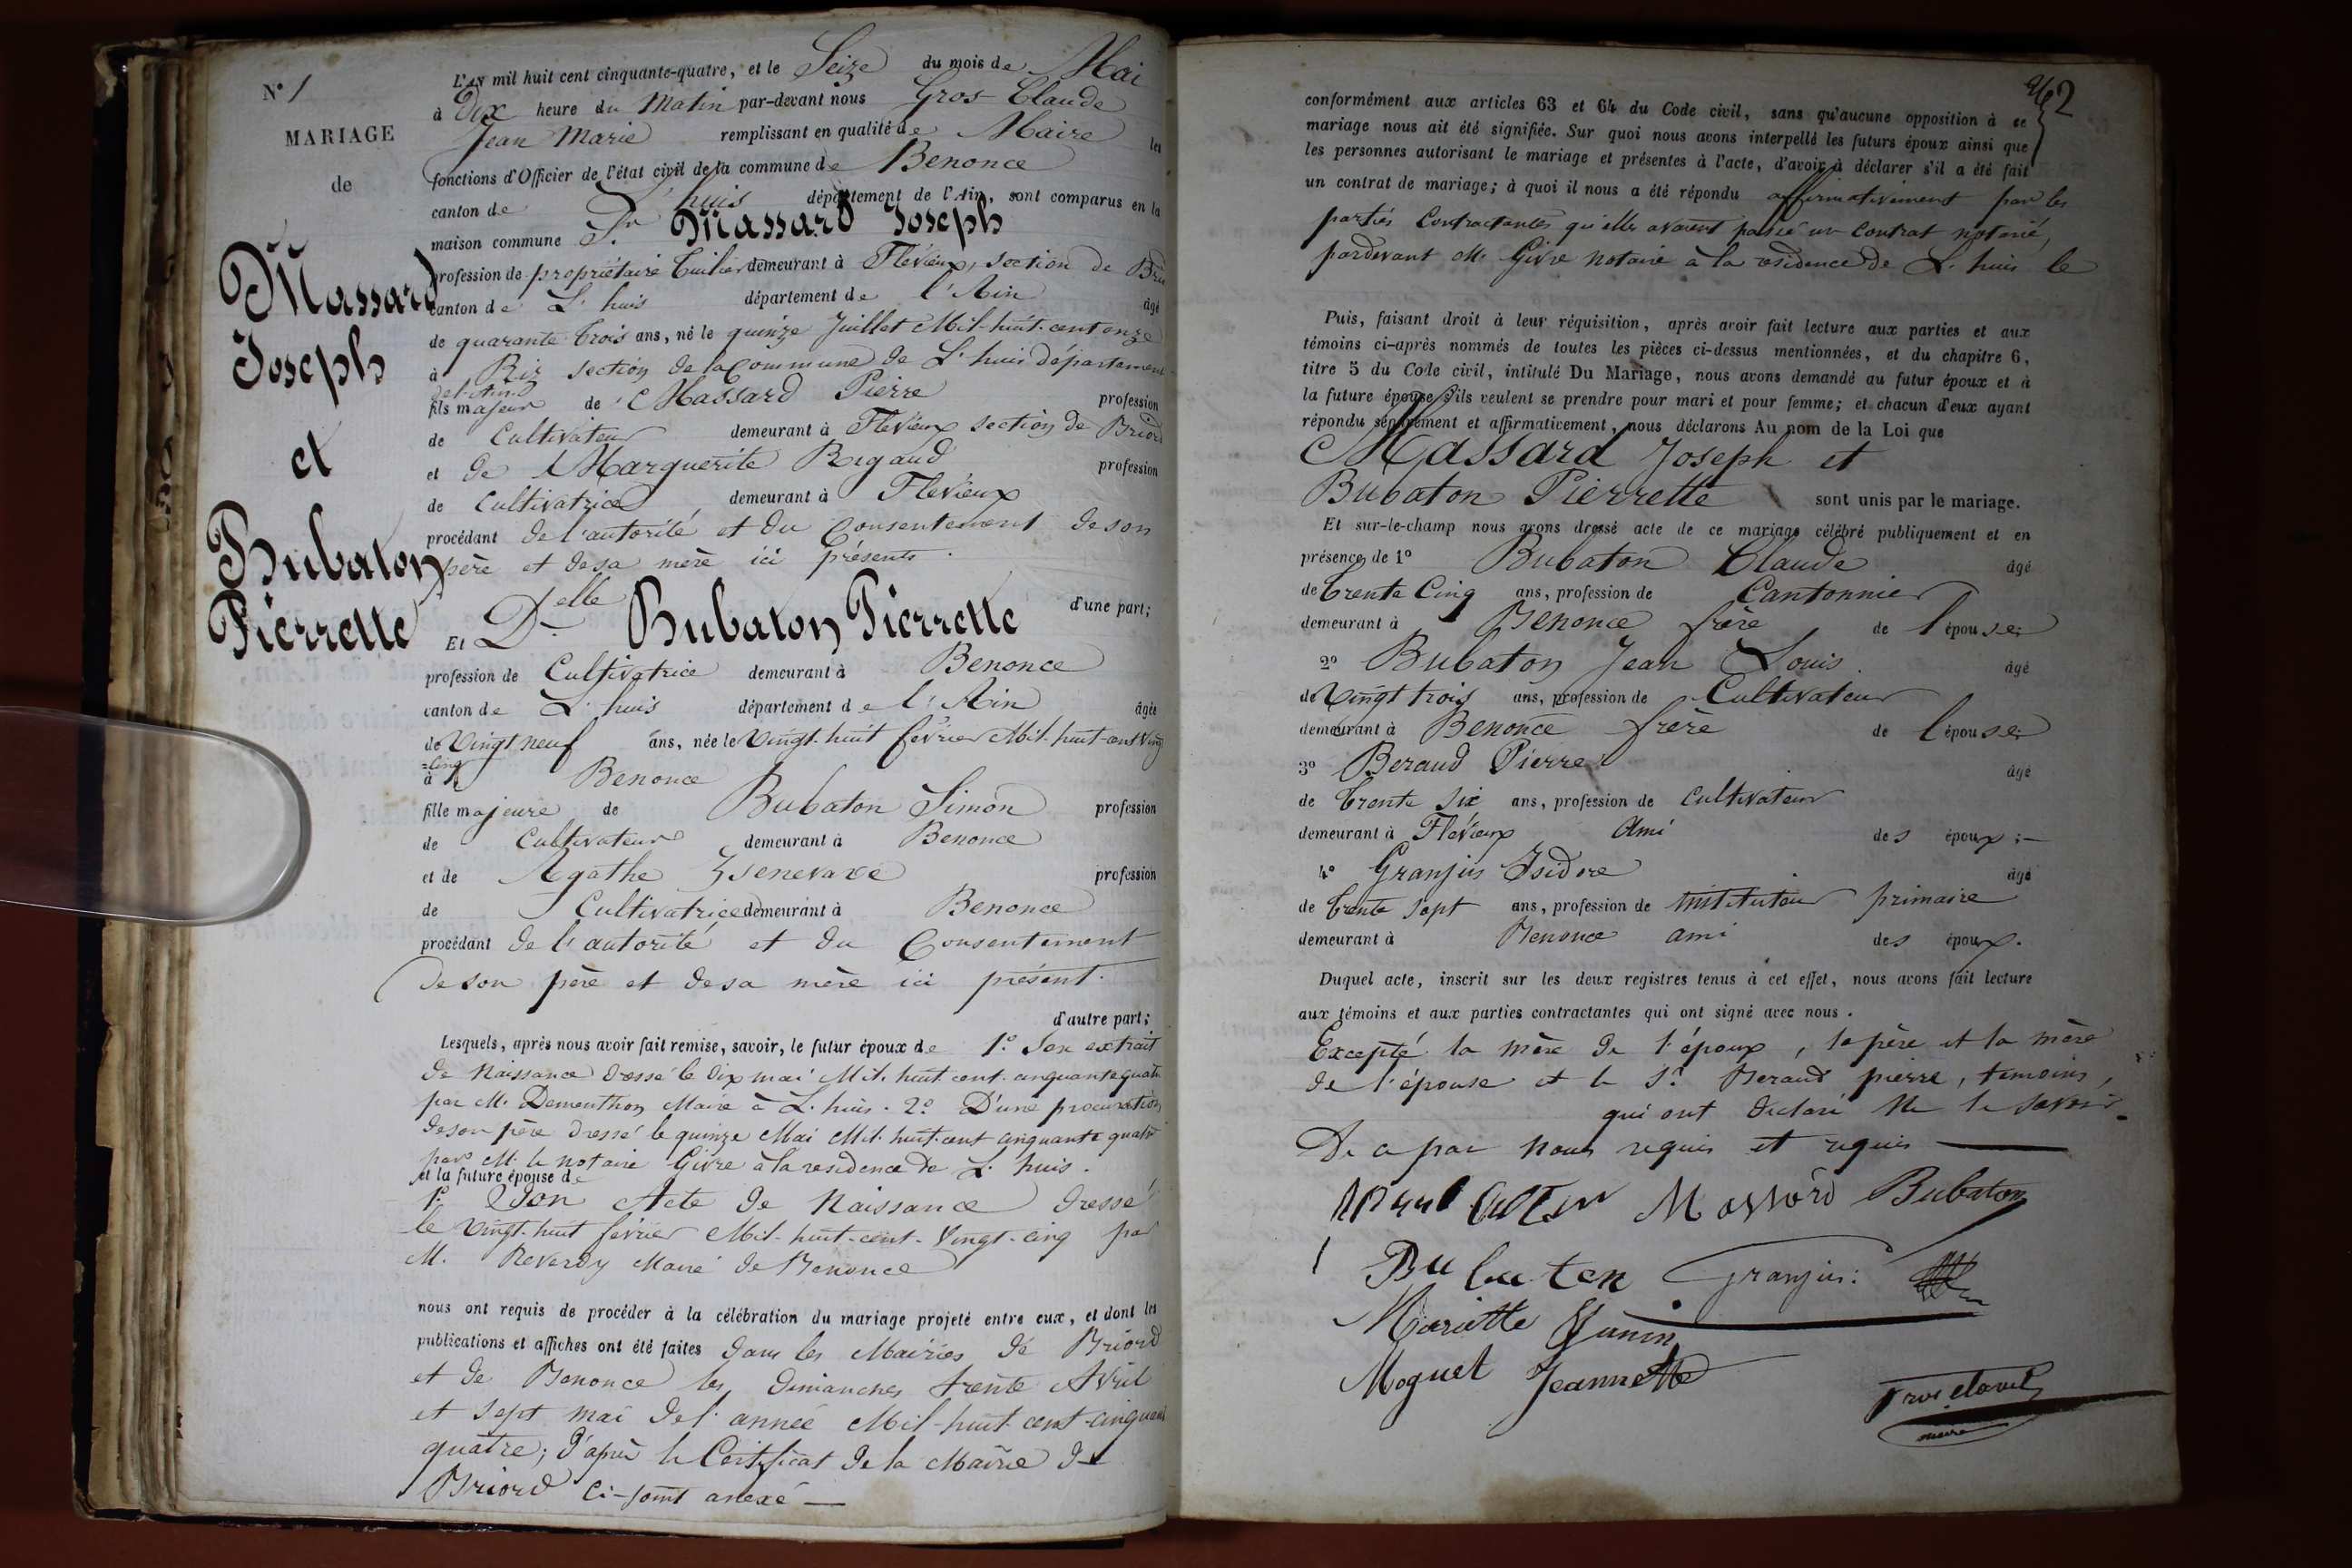 N° 1
MARIAGE
de
Massard
Joseph
et
Bubaton
Pierrette
L'An mil huit cent cinquante-quatre, et le Seize du mois de Mai
à Dix heure du Matin par-devant nous Gros-Claude
Jean Marie remplissant en qualité de Maire les
fonctions d'Officier de l'état civil de la commune de Benonce
canton de L'huis département de l'Ain, sont comparus en la
maison commune Sr Massard Joseph
profession de propriétaire tuilier demeurant à Flévieux, section de Briord
canton de L'huis département de l'Ain âgé
de quarante trois ans, né le quinze Juillet Mil-huit-cent onze
à Rix section de la Commune de L'huis département
de l'Ain
fils majeur de Massard Pierre profession
de Cultivateur demeurant à Flévieux section de Briord
et de Marguerite Rigaud profession
de Cultivatrice demeurant à Flévieux
procédant de l'autorité et du Consentement de son
père et de sa mère ici présents.
d'une part;
Et Delle Bubaton Pierrette
profession de Cultivatrice demeurant à Benonce
canton de L'huis département de l'Ain âgée
de Vingt neuf ans, née le Vingt-huit février Mil-huit-cent vingt
=cinq
à Benonce
fille majeure de Bubaton Simon profession
de Cultivateur demeurant à Benonce
et de Agathe profession
de Cultivatrice demeurant à Benonce
procédant de l'autorité et du Consentement
de son père et de sa mère ici présent.
d'autre part;
Lesquels, après nous avoir fait remise, savoir, le futur époux de 1° Son extrait
de Naissance dressé le dix mai Mil-huit-cent-cinquante quatre
par M. Dementhon Maire à L'huis. 2° D'une procuration
de son père dressé le quinze Mai Mil-huit-cent cinquante quatre
par M. le notaire Givre à la residence de L'huis.
et la future épouse de
1° Son Acte de Naissance dressé
le Vingt-huit février Mil-huit-cent-Vingt-cinq par
M. Reverdy Maire de Benonce
nous ont requis de procéder à la célébration du mariage projeté entre eux, et dont les
publications et affiches ont été faites dans les Mairies de Briord
et de Benonce les dimanches trente Avril
et sept mai de l'année Mil-huit-cent-cinquante
quatre; d'après le Certificat de la Mairie de
Briord ci-joint anexé —
62
conformément aux articles 63 et 64 du Code civil, sans qu'aucune opposition à ce
mariage nous ait été signifiée. Sur quoi nous avons interpellé les futurs époux ainsi que
les personnes autorisant le mariage et présentes à l'acte, d'avoir à déclarer s'il a été fait
un contrat de mariage; à quoi il nous a été répondu affirmativement par les
parties Contractantes qu'elles avaient passé un Contrat notarié,
pardevant M. Givre notaire à la residence de L'huis le
Puis, faisant droit à leur réquisition, après avoir fait lecture aux parties et aux
témoins ci-après nommés de toutes les pièces ci-dessus mentionnées, et du chapitre 6,
titre 5 du Code civil, intitulé Du Mariage, nous avons demandé au futur époux et à
la future épouse s'ils veulent se prendre pour mari et pour femme; et chacun d'eux ayant
répondu séparément et affirmativement, nous déclarons Au nom de la Loi que
Massard Joseph et
Bubaton Pierrette sont unis par le mariage.
Et sur-le-champ nous avons dressé acte de ce mariage célébré publiquement et en
présence de 1° Bubaton Claude âgé
de trente Cinq ans, profession de Cantonnier
demeurant à Benonce frère de l'épouse;
2° Bubaton Jean Louis âgé
de Vingt trois ans, profession de Cultivateur
demeurant à Benonce frère de l'épouse;
3° Beraud Pierre âgé
de trente Six ans, profession de cultivateur
demeurant à Flévieux Ami des époux;—
4° Granjus Isidore âgé
de trente sept ans, profession de instituteur primaire
demeurant à Benonce ami des époux.
Duquel acte, inscrit sur les deux registres tenus à cet effet, nous avons fait lecture
aux témoins et aux parties contractantes qui ont signé avec nous.
Excepté la mère de l'époux, le père et la mère
de l'épouse et le Sr Beraud pierre, temoins,
qui ont declaré Ne le savoir.
De ce par nous requis et requis —
Massord Bubaton
Bubaton Granjus
Mariette
Moguet Jeannette
maire